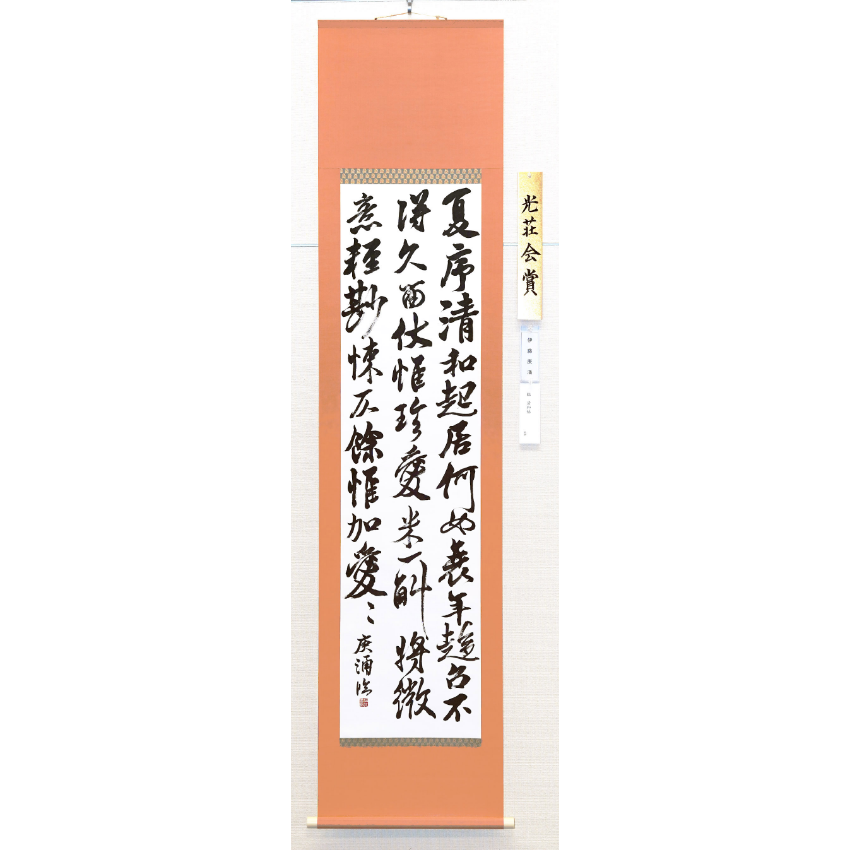 夏序清和起居何如衰年趨召不
得久留伏惟珍愛米一斛將微
意輕尠悚仄餘惟加愛〻
庚 臨
光荘会賞